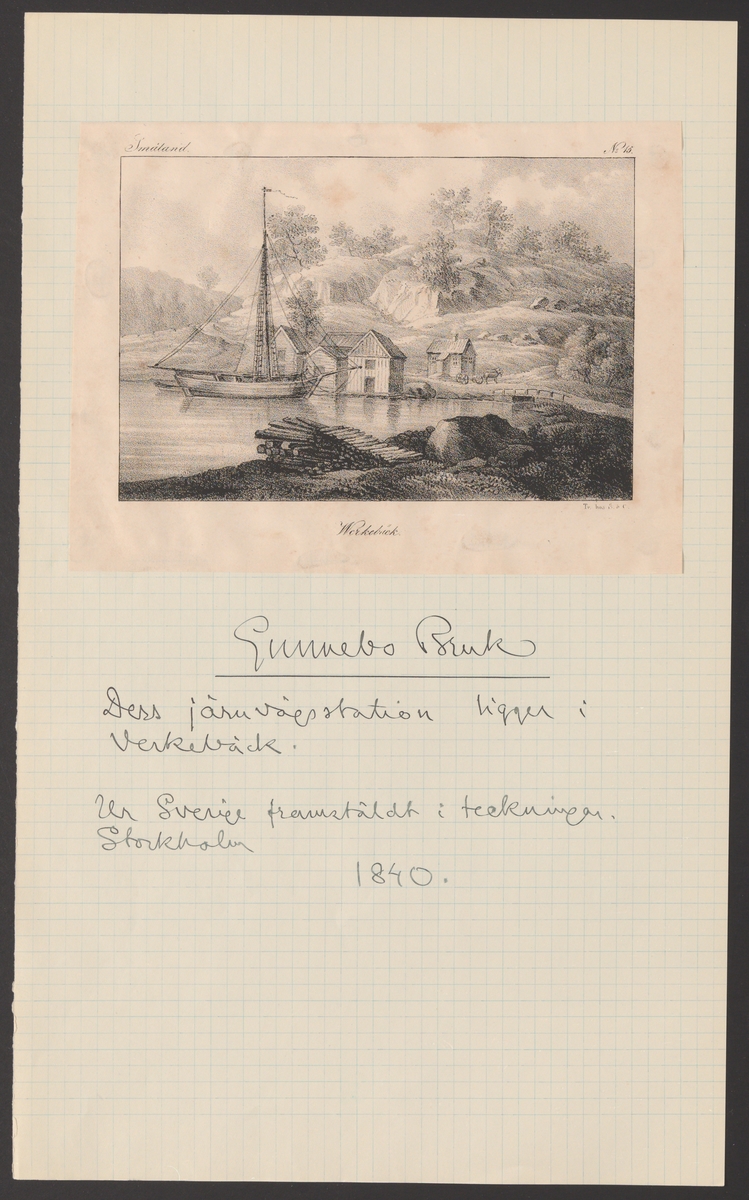 Småland.
No 45.
Werkebäck.
Gunnebo Bruk
Dess järnvägsstation ligger i
Verkebäck.
Ur Sverige framstäldt i teckningar.
Stockholm
1840.